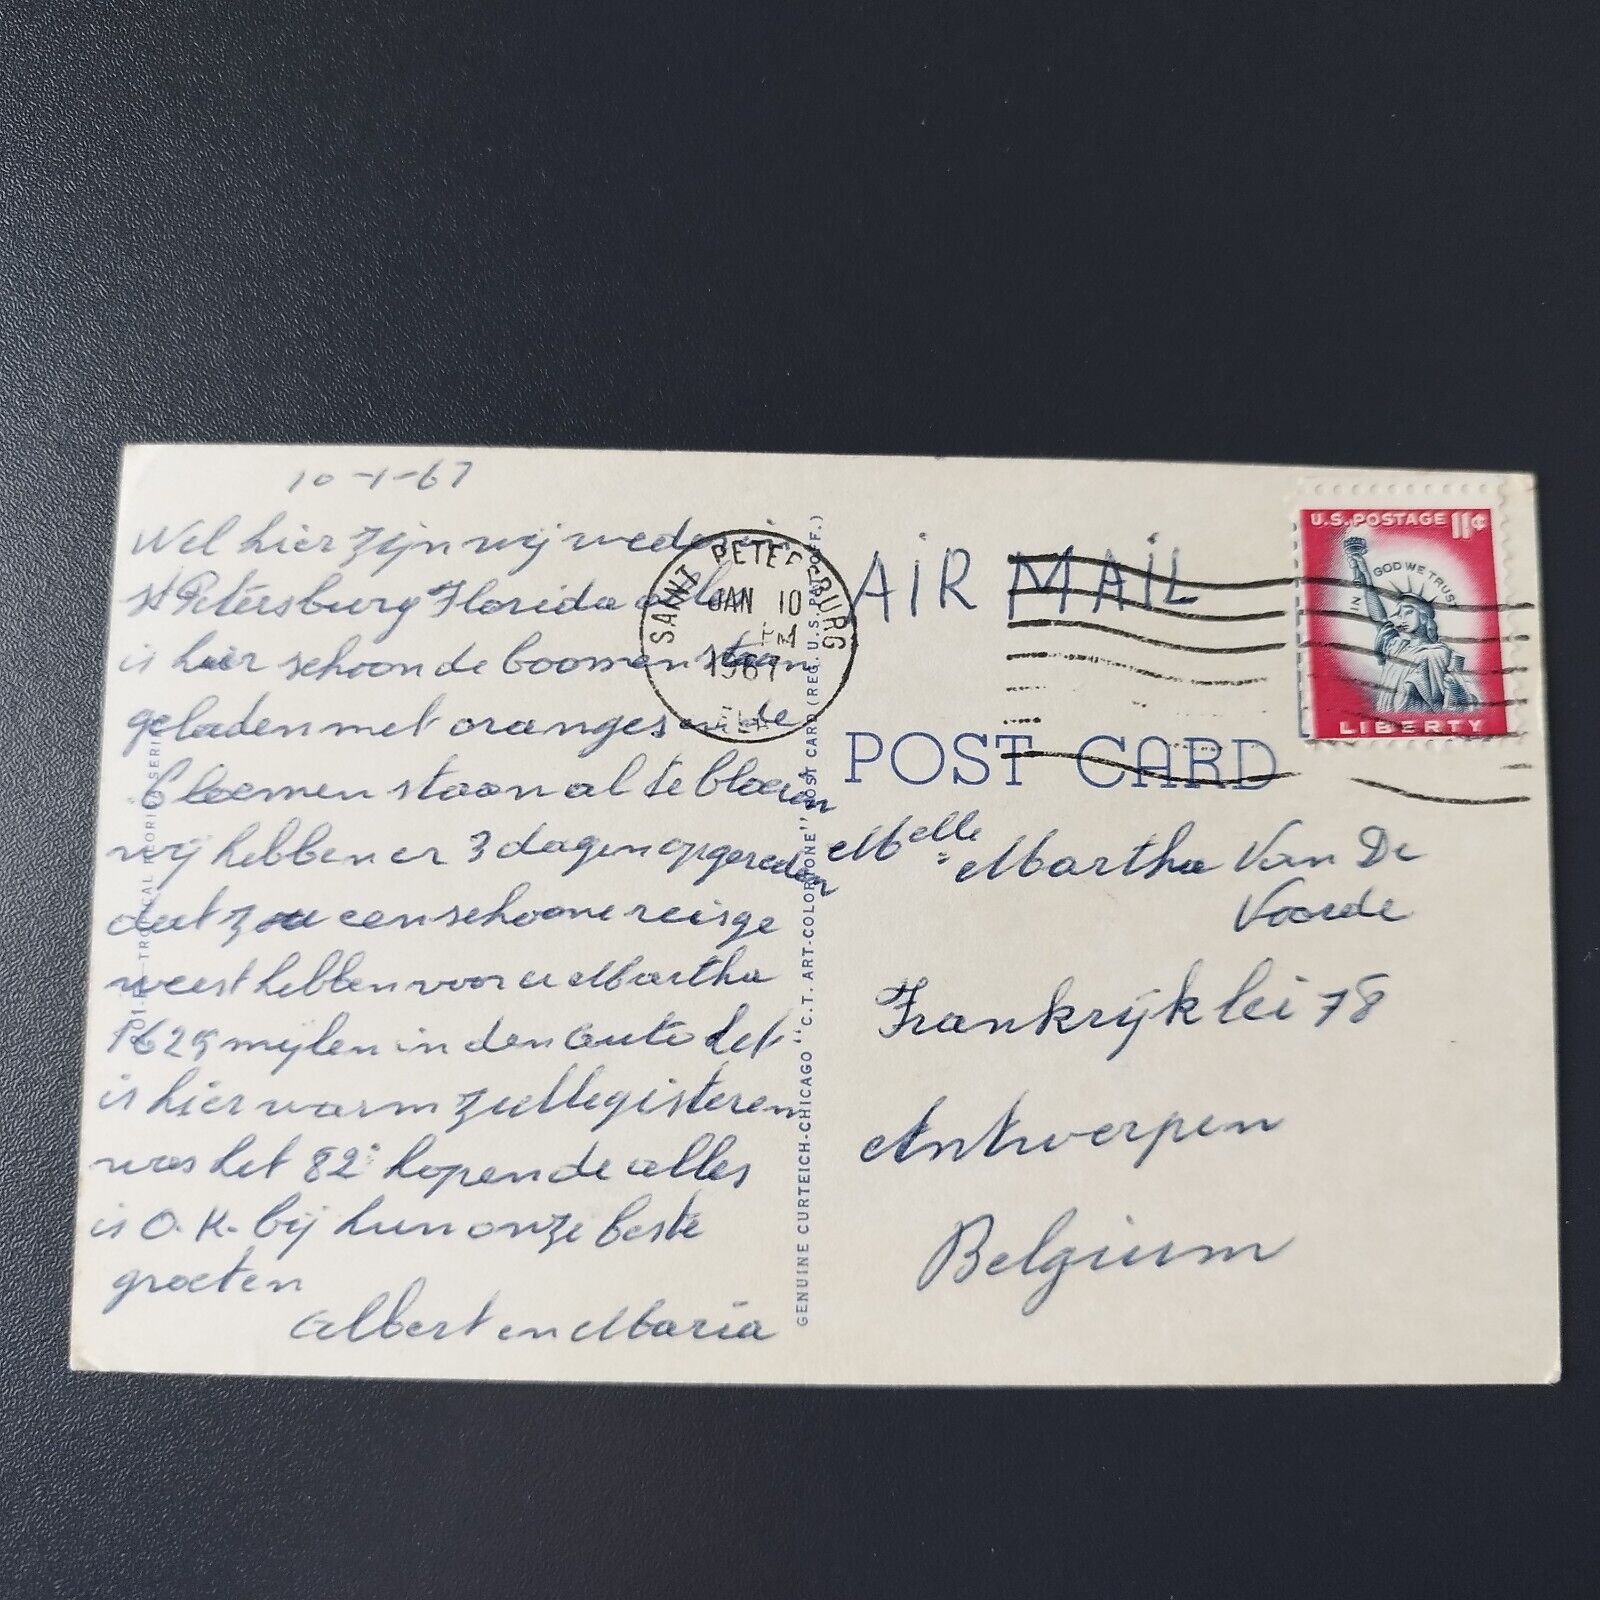 10-1-67
Wel hier zijn wij weder in
St Petersburg Florida
is hier schoon de boomen staan
geladen met oranges en de
bloemen staan al te bloeien
wij hebben er 3 dagen opgereden
dat zou een schoone reis ge
weest hebben voor u Martha
1629 mijlen in den auto het
is hier warm zulle gisteren
was het 82° hopende alles
is O.K. bij hun onze beste
groeten
Albert en Maria
SAINT PETERSBURG
JAN 10
PM
1967
FLA
AIR MAIL
U.S. POSTAGE 11¢
IN GOD WE TRUST
LIBERTY
POST CARD
Melle Martha Van De
Voorde
Frankrijklei 78
Antwerpen
Belgium
GENUINE CURTEICH-CHICAGO "C.T. ART-COLORTONE" POST CARD (REG. U.S. PAT. OFF.)
TROPICAL FLORIDA SERIES